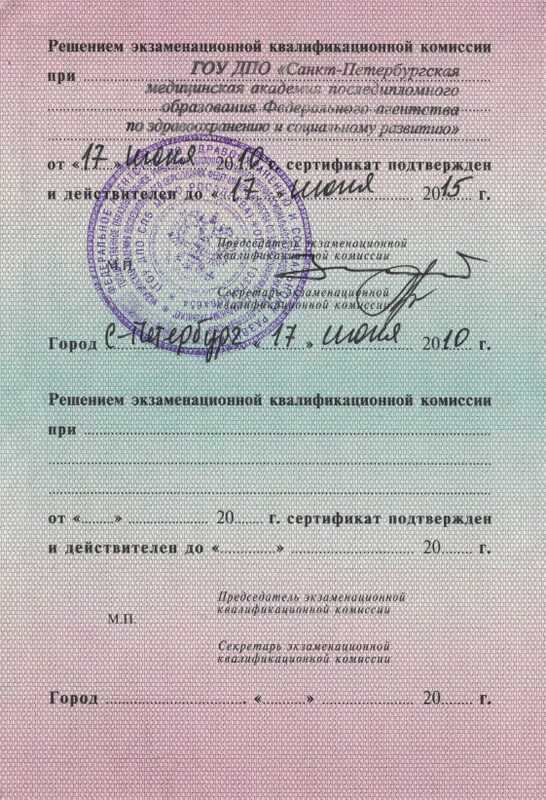 Решением экзаменационной квалификационной комиссии
при ГОУ ДПО «Санкт-Петербургская
медицинская академия последипломного
образования Федерального агентства
по здравоохранению и социальному развитию»
от «17» июня 2010 г. сертификат подтвержден
и действителен до «17» июня 2015 г.
Председатель экзаменационной
квалификационной комиссии
М.П.
Секретарь экзаменационной
квалификационной комиссии
Город С-Петербург «17» июня 2010 г.
Решением экзаменационной квалификационной комиссии
при
от «........» ...................... 20....... г. сертификат подтвержден
и действителен до «..............» ...................... 20....... г.
Председатель экзаменационной
квалификационной комиссии
М.П.
Секретарь экзаменационной
квалификационной комиссии
Город ................................... «.........» ...................... 20....... г.